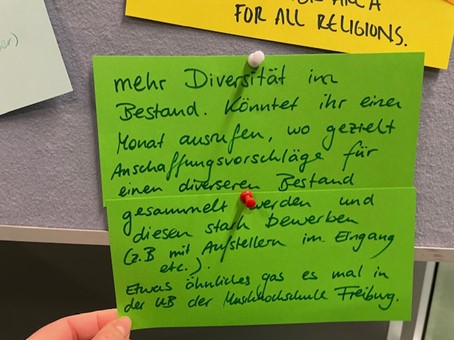 FOR ALL RELIGIONS.
mehr Diversität im
Bestand. Könntet ihr einen
Monat ausrufen, wo gezielt
Anschaffungsvorschläge für
einen diverseren Bestand
gesammelt werden und
diesen stark bewerben
(z.B mit Aufstellern im Eingang
etc.).
Etwas ähnliches gas es mal in
der UB der Musikhochschule Freiburg.